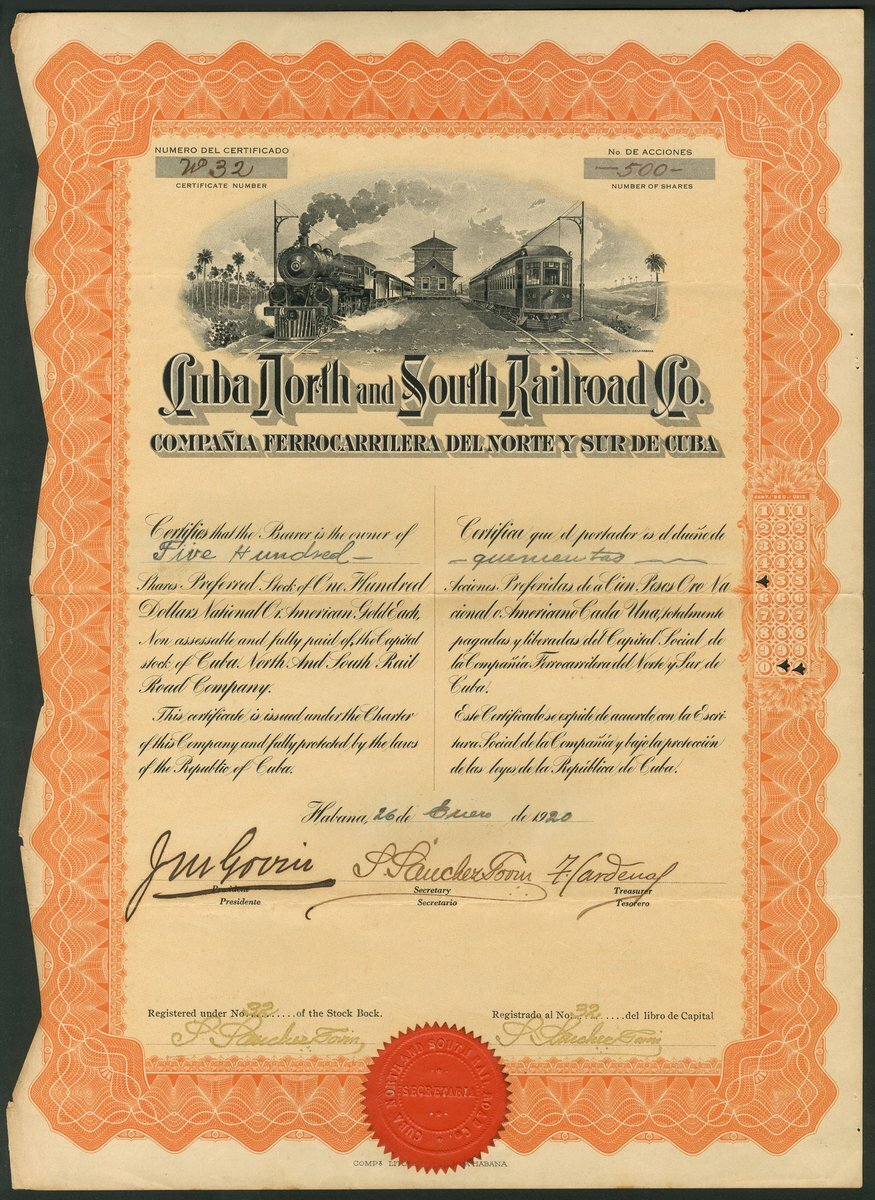 NUMERO DEL CERTIFICADO
Nº 32
CERTIFICATE NUMBER
No. DE ACCIONES
-500-
NUMBER OF SHARES
Cuba North and South Railroad Co.
COMPAÑIA FERROCARRILERA DEL NORTE Y SUR DE CUBA
Certifies that the Bearer is the owner of
Five Hundred-
Shares Preferred Stock of One Hundred
Dollars, National Or American, Gold Each,
Non assessable and fully paid of, the Capital
stock of Cuba North And South Rail
Road Company.
This certificate is issued under the Charter
of this Company and fully protected by the laws
of the Republic of Cuba.
Certifica que el portador es el dueño de
- quinientas -
Acciones Preferidas de á Cien Pesos Oro Na
cional o Americano Cada Una, totalmente
pagadas y libradas del Capital Social de
la Compañia Ferrocarrilera del Norte y Sur de
Cuba.
Este Certificado se expide de acuerdo con la Escri-
tura Social de la Compañía y bajo la protección
de las leyes de la República de Cuba.
1 1 1
2 2 2
3 3 3
4 4 4
5 5
6 6 6
7 7 7
8 8 8
9 9 9
Habana, 26 de Enero de 1920
J M Govin
President
Presidente
S. Sánchez Govin
Secretary
Secretario
F Cardenas
Treasurer
Tesorero
Registered under No. 32 ..... of the Stock Bock.
S. Sánchez Govin
Registrado al No. 32 .... del libro de Capital
S. Sánchez Govin
CUBA NORTH AND SOUTH RAILROAD CO.
SECRETARIA
COMPª LITO
HABANA